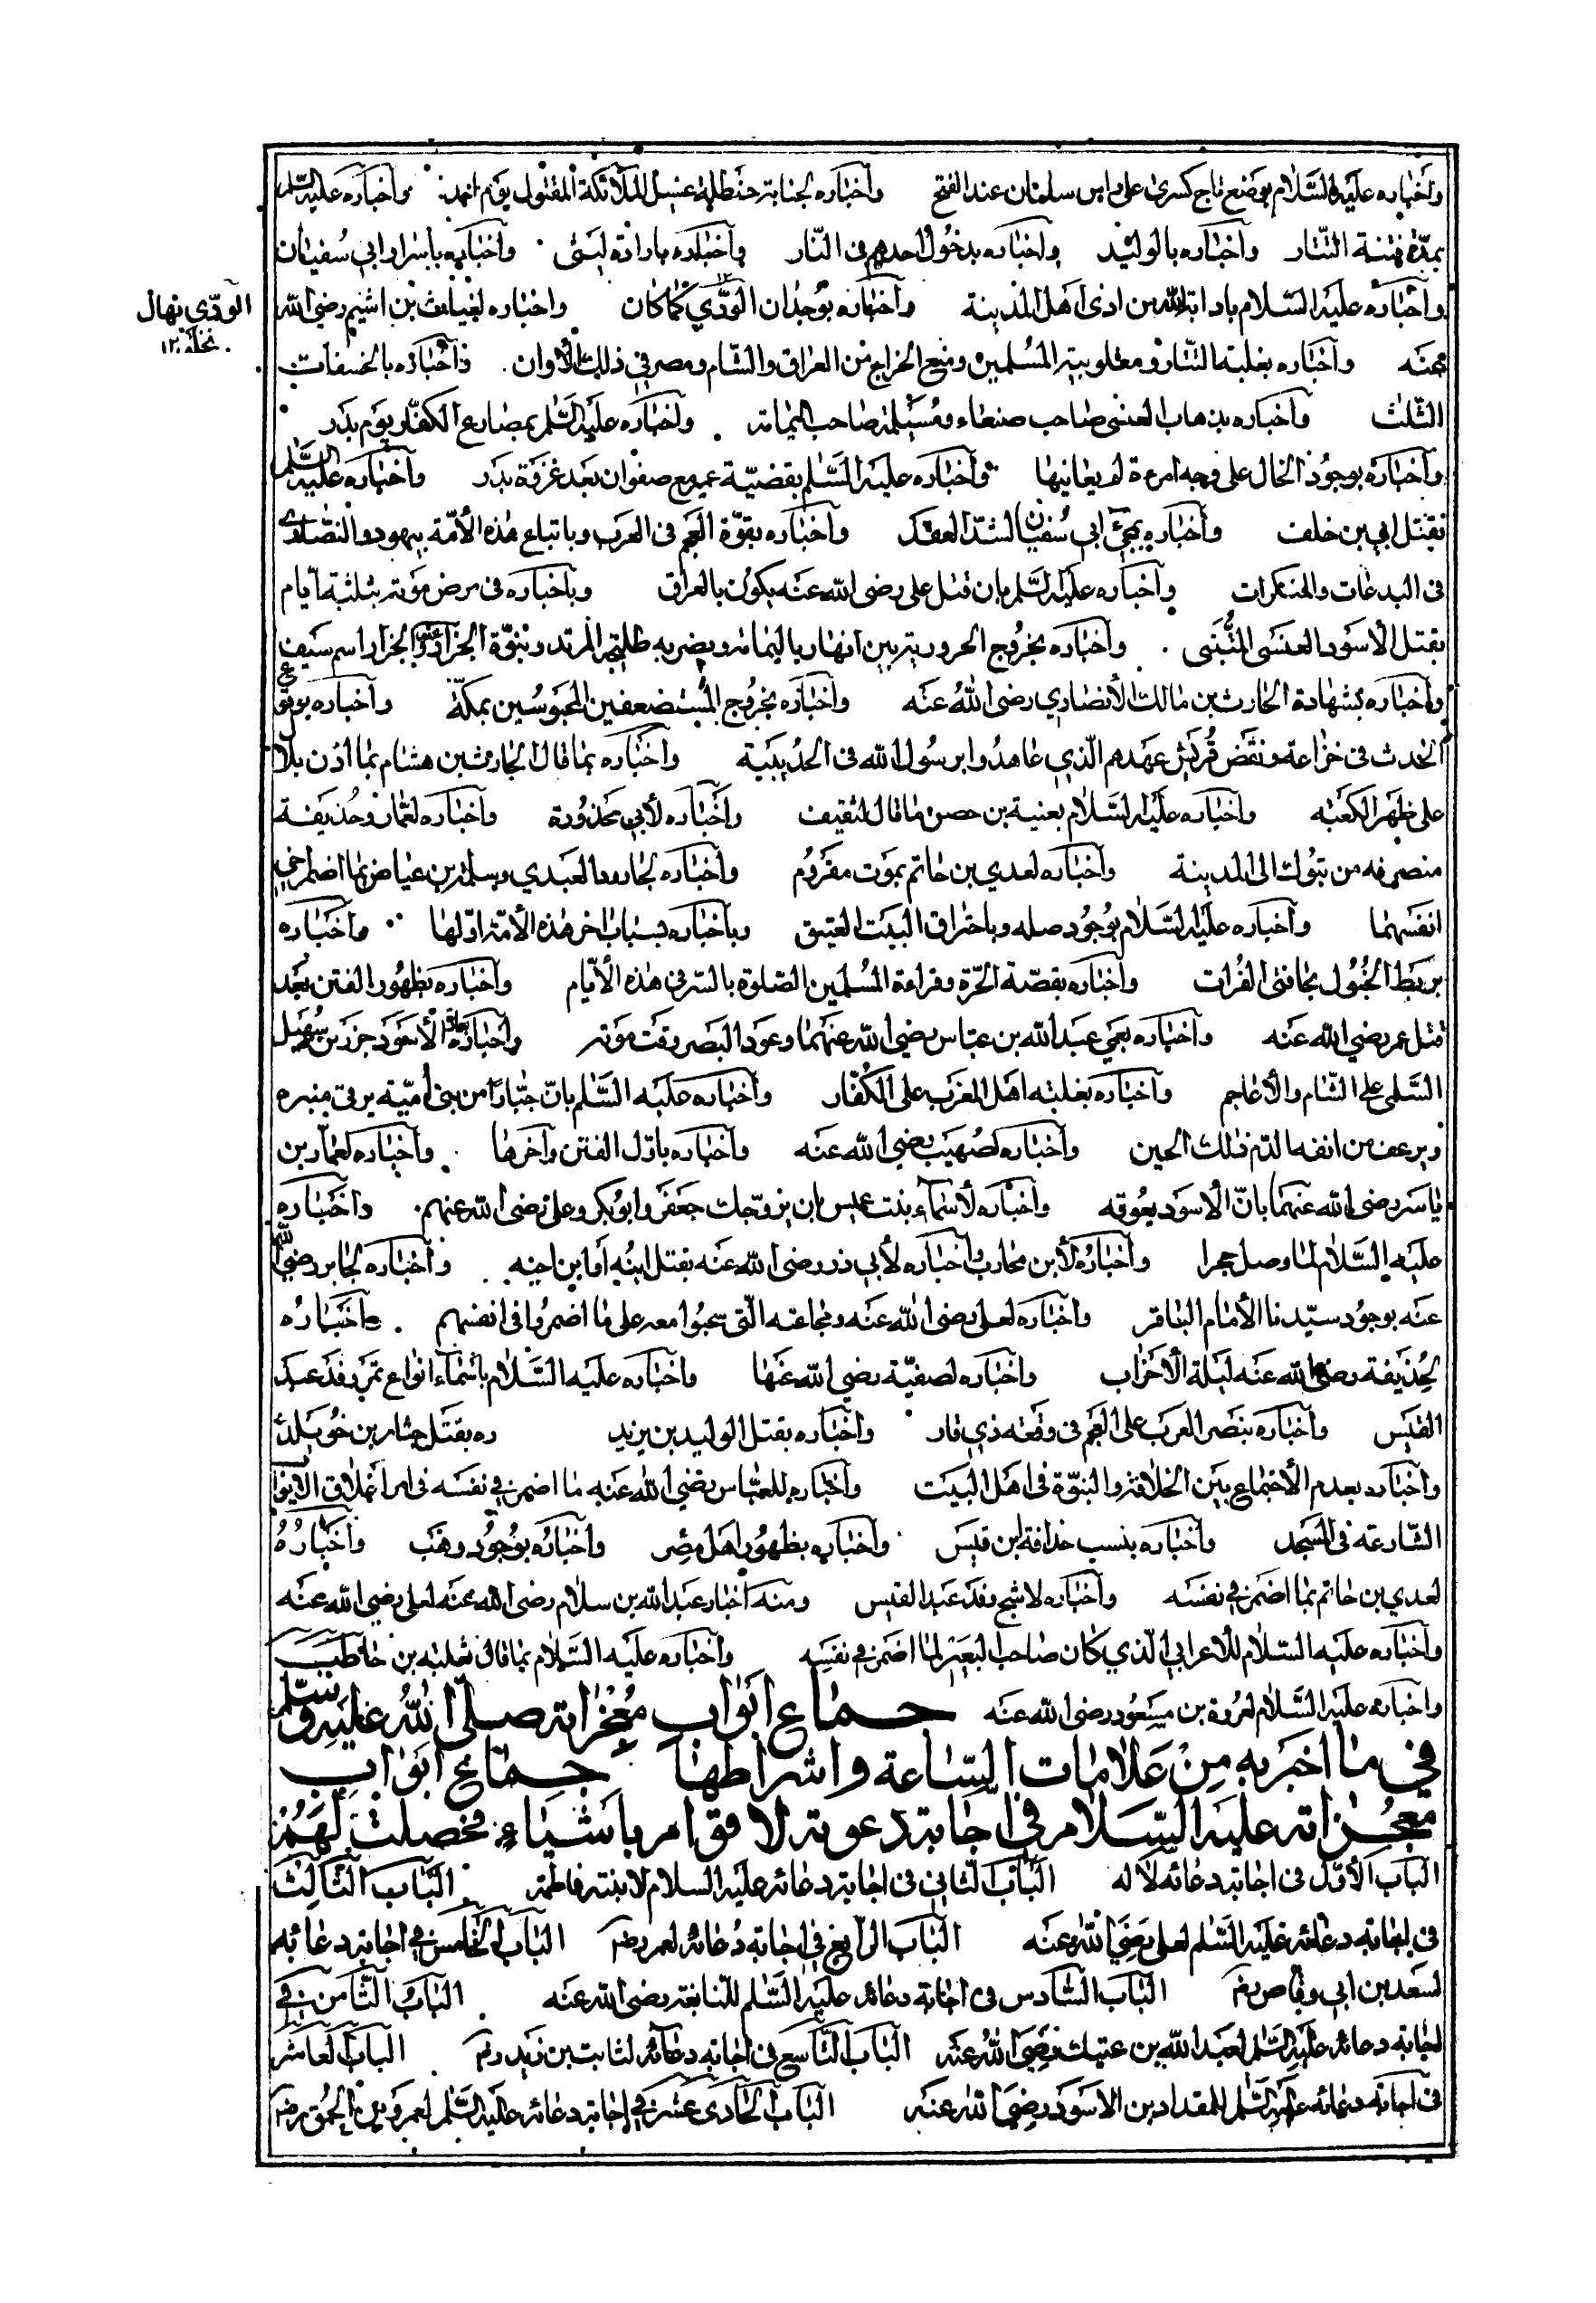 واخباره عليه السلام بوضع تاج كسرى على راس سلمان عند الفتح واخباره الجنابة حنظلة غسيل الملائكة المقتول يوم احد واخباره عليه السلم
بمدة فتنة التتار واخباره بالوليد واخباره بدخول احدهم فى النار واخباره باسرار ابي سفيان
واخباره عليه السلام باذابة الله من اذى اهل المدينة واخباره بوجدان الودّي كما كان واخباره لغياث بن اشيم رضي الله
عنه واخباره بغلبة التتار ومغلوبية المسلمين ومنع الخراج من العراق والشام ومصر في ذلك الأوان واخباره بالخسفات
الثلث واخباره بذهاب العنسى صاحب صنعاء ومسيلمة صاحب اليمامة واخباره عليه السلم بمصارع الكفار يوم بدر
واخباره بوجود الخال على وجه امرءة لم يعاينها واخباره عليه السلم بقضية عمير مع صفوان بعد غزوة بدر واخباره عليه السلم
بقتل ابي بن خلف واخباره بمجئ ابي سفيان لشد العقد واخباره بقوة العجم فى العرب وباتباع هذه الأمة بيهود والنصارى
فى البدعات والمنكرات واخباره عليه السلم بان قتل على رضى الله عنه يكون بالعراق وباخباره فى مرض موته بثلثة ايام
بقتل الأسود العنسى المتنبى واخباره بخروج الحرورية بين انهار باليمامة ويضربه طليحة المرتد ونبوة الجزار والجزار اسم سيف
واخباره بشهادة الحارث بن مالك الأنصاري رضى الله عنه واخباره بخروج المستضعفين المحبوسين بمكة واخباره بوقوع
الحدث فى خزاعة ونقض قريش عهدهم الذي عاهدوا برسول الله فى الحديبية واخباره بما قال الحارث بن هشام بما اذن بلال
على ظهر الكعبة واخباره عليه السلام بعنية بن حصن ما قال لثقيف واخباره لأبي محذورة واخباره لعمار وحذيفة
منصرفه من تبوك الى المدينة واخباره لعدي بن حاتم بموت واخباره لجارود العبدي وسلمة بن عياض بما اضمرا في
انفسهما واخباره عليه السلام بوجود صله وباحتراق البيت العتيق وباخباره بسباب اخر هذه الأمة اولها واخباره
بربط الخيول بحافتى الفرات واخباره بقصة الحرة وقراءة المسلمين الصلوة بالسر في هذه الأيام واخباره بظهور الفتن بعد
قتل عمر رضي الله عنه واخباره بعمي عبد الله بن عباس رضي الله عنهما وعود البصر وقت موته واخباره الأسود سهيل
السلمى على الشام والأعاجم واخباره بغلبة اهل المغرب على الكفار واخباره عليه السلم بان جبارا من بني أمية يرقى منبره
ويرعف من انفه الدم ذلك الحين واخباره لصهيب رضي الله عنه واخباره باول الفتن وآخرها واخباره لعمار بن
ياسر رضى الله عنهما بان الأسود يعوقه واخباره لأسماء بنت عميس بان يزوجك جعفر وابو بكر وعلى رضى الله عنهم واخباره
عليه السلام لما وصل حجرا واخباره لأبن محارب واخباره لأبي ذر رضى الله عنه بقتل ابنه او ابن اخيه واخباره لجابر رضى الله
عنه بوجود سيدنا الأمام الباقر واخباره لعلى رضى الله عنه وجماعة التى صحبوا معه على ما اضمروا فى انفسهم واخباره
لحذيفة رضى الله عنه ليلة الأحزاب واخباره لصفية رضي الله عنها واخباره عليه السلام بأسماء انواع تمر وفد عبد
القيس واخباره بنصر العرب على العجم فى وقعة ذي قار واخباره بقتل الوليد بن يزيد ره بقتل بن خويلد
واخباره بعدم الأجتماع بين الخلافة والنبوة فى اهل البيت واخباره للعباس رضي الله عنه ما اضمر في نفسه فى امر اغلاق الابواب
الشارعة فى المسجد واخباره بنسب حذافة بن قيس واخباره بظهور اهل مصر واخباره بوجود وهب واخباره
لعدي بن حاتم بما اضمر في نفسه واخباره لاشج وفد عبد القيس ومنه اخبار عبد الله بن سلام رضى الله عنه لعلى رضي الله عنه
واخباره عليه السلام للاعرابي الذي كان صاحب البعير لما اضمر في نفسه واخباره عليه السلام بما قال ثعلبة بن حاطب
واخباره عليه السلام لعروة بن مسعود رضى الله عنه جماع ابواب معجزاته صلى الله عليه وسلم
في ما اخبر به من علامات الساعة واشراطها جماع ابواب
معجزاته عليه السلام في اجابة دعوته لاقوام باشياء فحصلت لهم
الباب الأول فى اجابة دعائه لآله الباب الثاني فى اجابة دعائه عليه السلام لابنته فاطمة الباب الثالث
فى اجابة دعائه عليه السلم لعلى رضي الله عنه الباب الرابع في اجابة دعائه لعمر رضه الباب الخامس في اجابة دعائه
لسعد بن ابي وقاص رضه الباب السادس فى اجابة دعائه عليه السلم للنابغة رضى الله عنه الباب الثامن في
اجابة دعائه عليه السلم لعبد الله بن عتيك رضي الله عنه الباب التاسع فى اجابة دعائه لثابت بن زيد رضه الباب العاشر
فى اجابة دعائه عليه السلم للمقداد بن الاسود رضي الله عنه الباب الحادى عشر في اجابة دعائه عليه السلم لعمرو بن الحمق رضه
الودّي نهال
نخلة ١٢